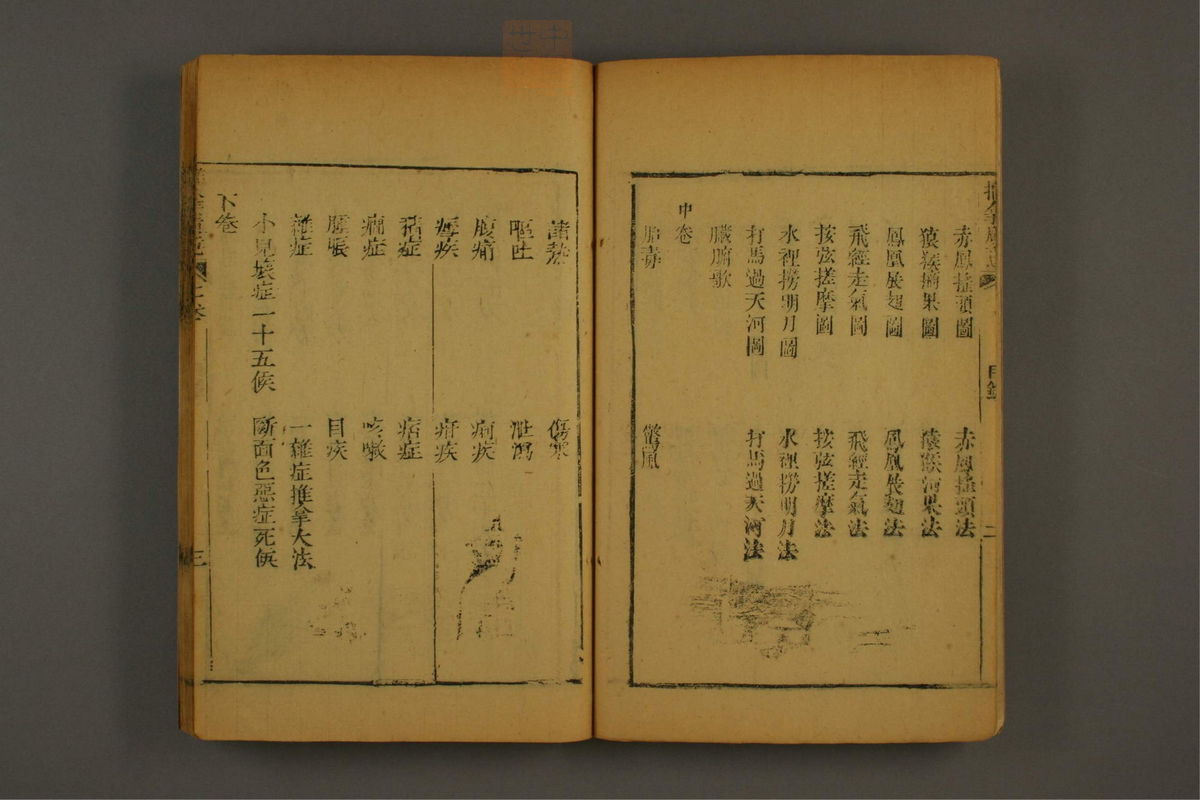 赤鳳搖頭圖 赤鳳搖頭法
猿猴摘果圖 猿猴摘果法
鳳凰展翅圖 鳳凰展翅法
飛經走氣圖 飛經走氣法
按弦搓摩圖 按弦搓摩法
水裡撈明月圖 水裡撈明月法
打馬過天河圖 打馬過天河法
臟腑歌
中卷
胎毒 驚風
目錄 二
諸熱 傷寒
嘔吐 泄瀉
腹痛 痢疾
瘧疾 疳疾
積症 痞症
癇症 咳嗽
腫脹 目疾
雜症 一雜症推拿大法
小兒壞症一十五候 斷面色惡症死候
下卷
三